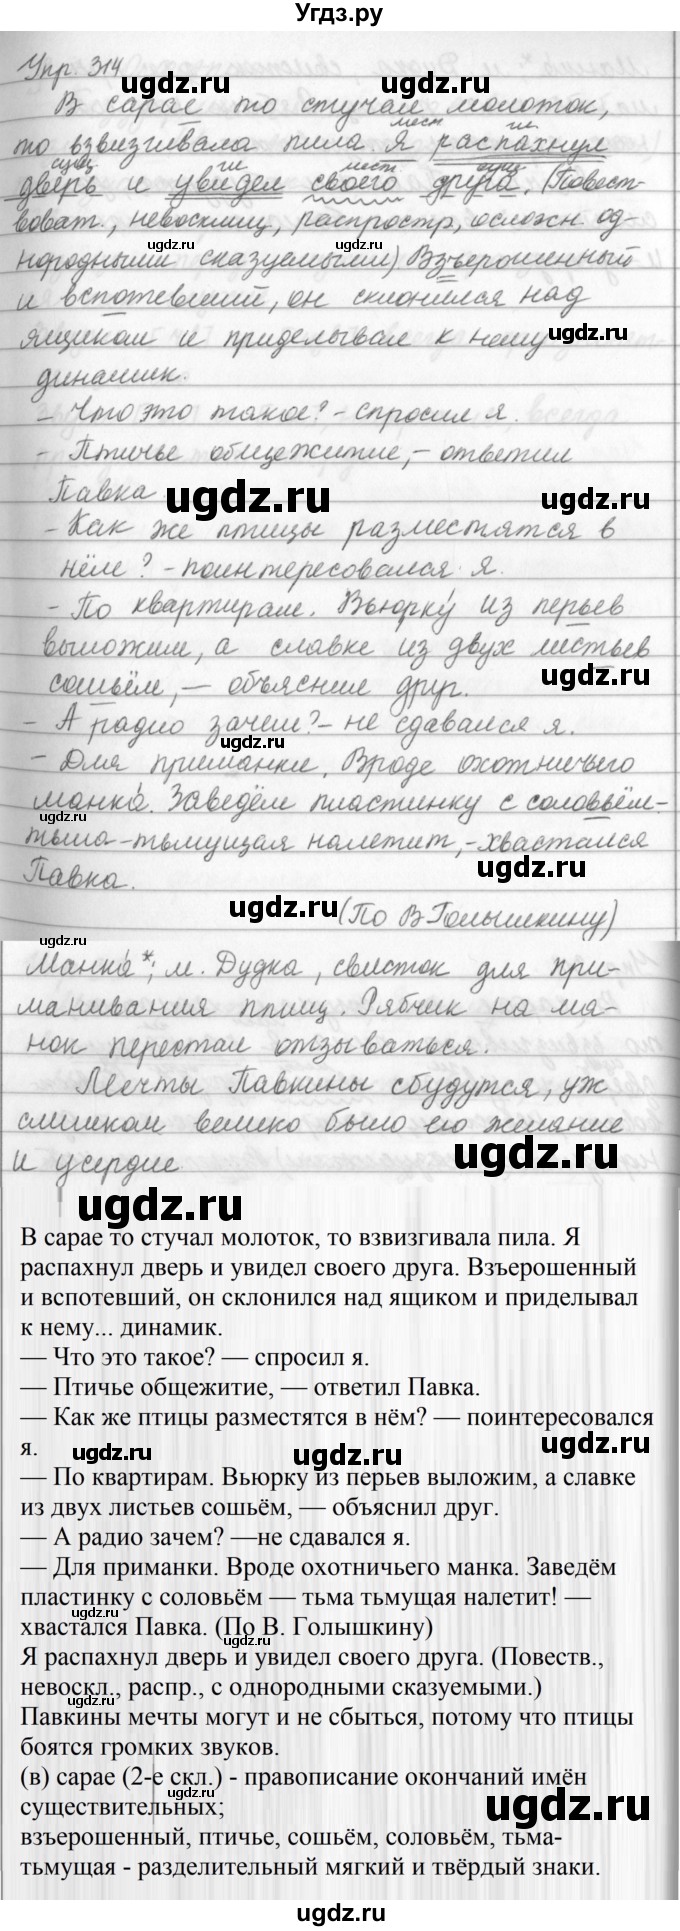 Угдз.ру
Упр. 314
В сарае то стучал молоток,
мест гл.
то взвизгивала пила. Я распахнул
сущ. гл. мест. сущ.
дверь и увидел своего друга. (Повест-
воват., невосклиц, распростр, осложн. од-
нородными сказуемыми). Взъерошенный
и вспотевший, он склонился над
ящиком и приделывал к нему
динамик.
- Что это такое? - спросил я.
- Птичье общежитие, - ответил
Павка.
- Как же птицы разместятся в
нём? - поинтересовался я.
- По квартирам. Вьюрку из перьев
выложим, а славке из двух листьев
сошьём, - объяснил друг.
- А радио зачем? - не сдавался я.
- Для приманки. Вроде охотничьего
манка́. Заведём пластинку с соловьём -
тьма-тьмущая налетит, - хвастался
Павка.
(По В Голышкину)
Манка́*; м. Дудка, свисток для при-
манивания птиц. Рябчик на ма-
нок перестал отзываться.
Мечты Павкины сбудутся, уж
слишком велико было его желание
и усердие.
В сарае то стучал молоток, то взвизгивала пила. Я
распахнул дверь и увидел своего друга. Взъерошенный
и вспотевший, он склонился над ящиком и приделывал
к нему... динамик.
— Что это такое? — спросил я.
— Птичье общежитие, — ответил Павка.
— Как же птицы разместятся в нём? — поинтересовался
я.
— По квартирам. Вьюрку из перьев выложим, а славке
из двух листьев сошьём, — объяснил друг.
— А радио зачем? —не сдавался я.
— Для приманки. Вроде охотничьего манка. Заведём
пластинку с соловьём — тьма тьмущая налетит! —
хвастался Павка. (По В. Голышкину)
Я распахнул дверь и увидел своего друга. (Повеств.,
невоскл., распр., с однородными сказуемыми.)
Павкины мечты могут и не сбыться, потому что птицы
боятся громких звуков.
(в) сарае (2-е скл.) - правописание окончаний имён
существительных;
взъерошенный, птичье, сошьём, соловьём, тьма-
тьмущая - разделительный мягкий и твёрдый знаки.
ugdz.ru